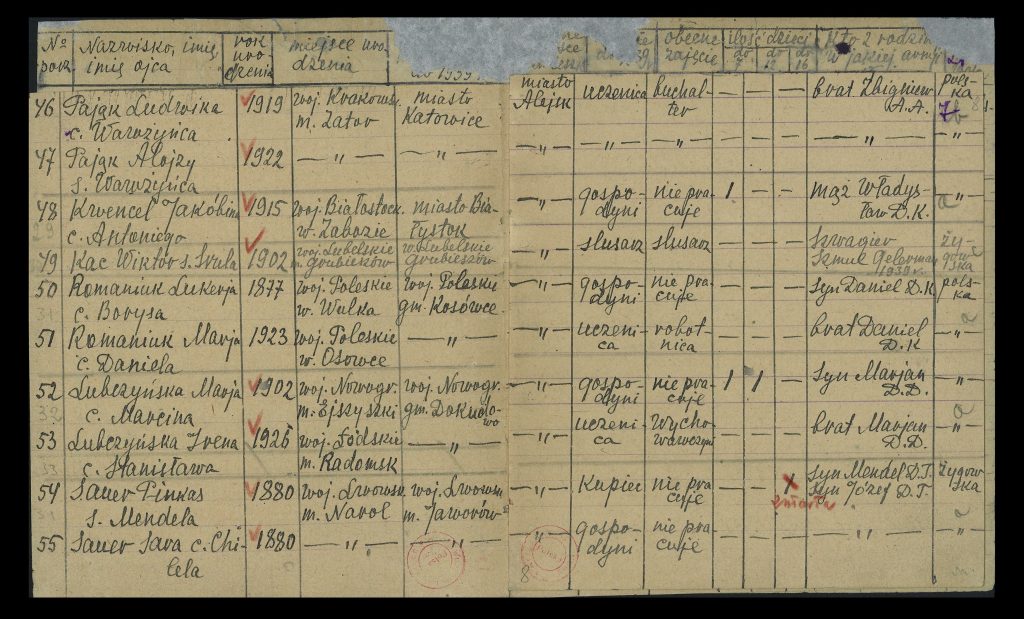 № porz. Nazwisko, imię, imię ojca rok uro dzenia miejsce uro- dzenia obecne zajęcie ilość dzieci do 7 do 16 Kto z rodzin w jakiej armji
46 Pająk Ludwika c. Wawrzyńca 1919 woj. Krakowsk. m. Zator miasto Katowice miasto Alejsk uczenica buchal- ter — — — brat Zbigniew A.A. pols- ka
47 Pająk Alojzy s. Wawrzyńca 1922 — „ — — „ — — „ — — „ — — „ — — — — — „ — — „ —
48 Kwencel Jakóbina c. Antoniego 1915 woj. Białostock. w. Zabozie miasto Bia- łystok — „ — gospo- dyni nie pra- cuje 1 — — mąż Władys- ław D.K. — „ —
49 Kac Wiktor s. Srula 1902 woj. Lubelskie m. Grubieszów w. Lubelskie Grubieszów — „ — slusarz slusarz — — — Szwagier Szmul Gelerman 1939 r. ży- dow- ska
50 Romaniuk Lukerja c. Borysa 1877 woj. Poleskie w. Wulka woj. Poleskie gm. Kosówce — „ — gospo- dyni nie pra- cuje — — — Syn Daniel D.K. pols- ka
51 Romaniuk Marja c. Daniela 1923 woj. Poleskie w. Osowce — „ — — „ — uczeni- ca robot- nica — — — brat Daniel D.K — „ —
52 Lubczyńska Marja c. Marcina 1902 woj. Nowogr. m. Ejszyszki woj. Nowogr. gm. Dokudo- wo — „ — gospo- dyni nie pra- cuje 1 1 — Syn Marjan D.D. — „ —
53 Lubczyńska Irena c. Stanisława 1926 woj. Łódskie m. Radomsk — „ — — „ — uczeni- ca wycho- wawczyni — — — brat Marjan D.D. — „ —
54 Sauer Pinkas s. Mendela 1880 woj. Lwowsk. m. Narol woj. Lwowsk. m. Jaworów — „ — Kupiec nie pra cuje — — x zmarła Syn Mendel D.T. Syn Józef D.T. żydow- ska
55 Sauer Sara c. Chi- lela 1880 — „ — — „ — — „ — gospo- dyni nie pra cuje — — — — „ — — „ —
8